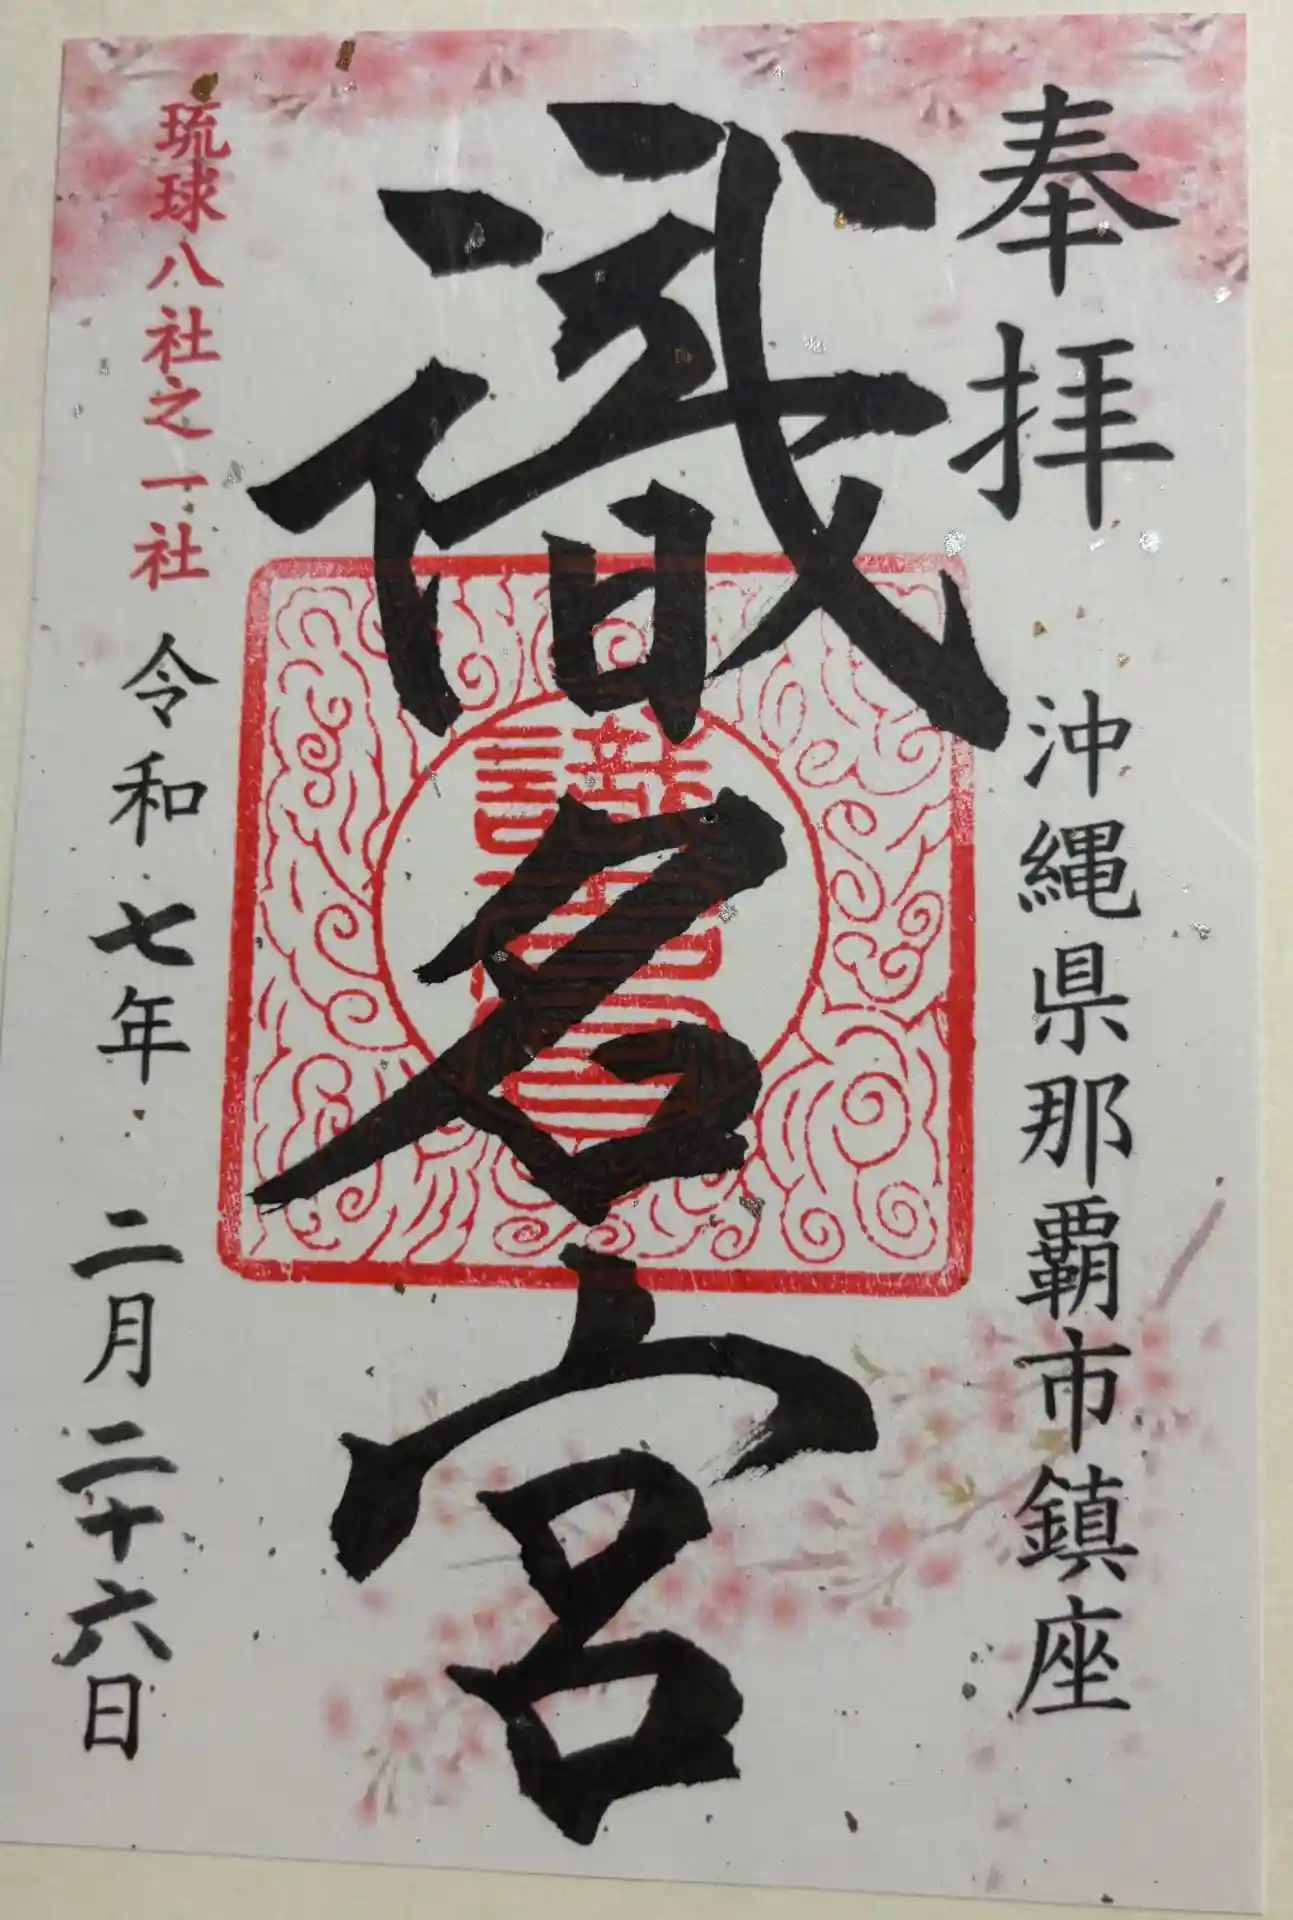 奉拝
沖縄県那覇市鎮座
識名宮
識名宮
琉球八社之一社
令和七年 二月二十六日